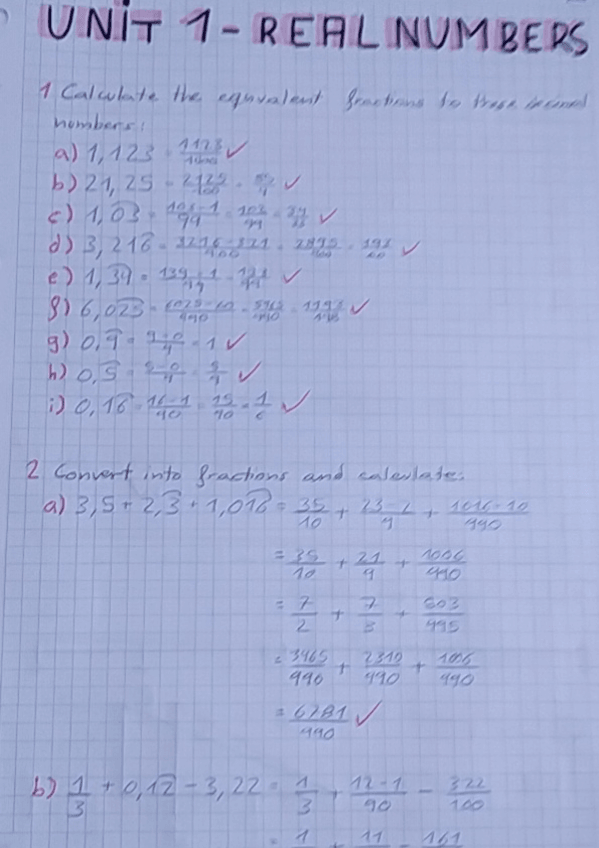 UNIT 1 - REAL NUMBERS
1 Calculate the equivalent fractions to these decimal
numbers:
a) 1,123 = 1123/1000 ✓
b) 21,25 = 2125/100 = ✓
c) 1,03 = = 102/99 = 34/33 ✓
d) 3,216 = 3216-321/900 = 2895/900 = 193/60 ✓
e) 1,39 = 139-1/99 = ✓
f) 6,023 = = ✓
g) 0,9 = 9-0/9 = 1 ✓
h) 0,5 = 5-0/9 = 5/9 ✓
i) 0,16 = 16-1/90 = 15/90 = 1/6 ✓
2 Convert into fractions and calculate:
a) 3,5 + 2,3 + 1,016 = 35/10 + 23-2/9 + 1016-10/990
= 35/10 + 21/9 + 1006/990
= 7/2 + 7/3 + 503/495
= 3465/990 + 2310/990 + 1006/990
= 6781/990 ✓
b) 1/3 + 0,12 - 3,22 = 1/3 + 12-1/90 - 322/100
= 1 + 11 - 161